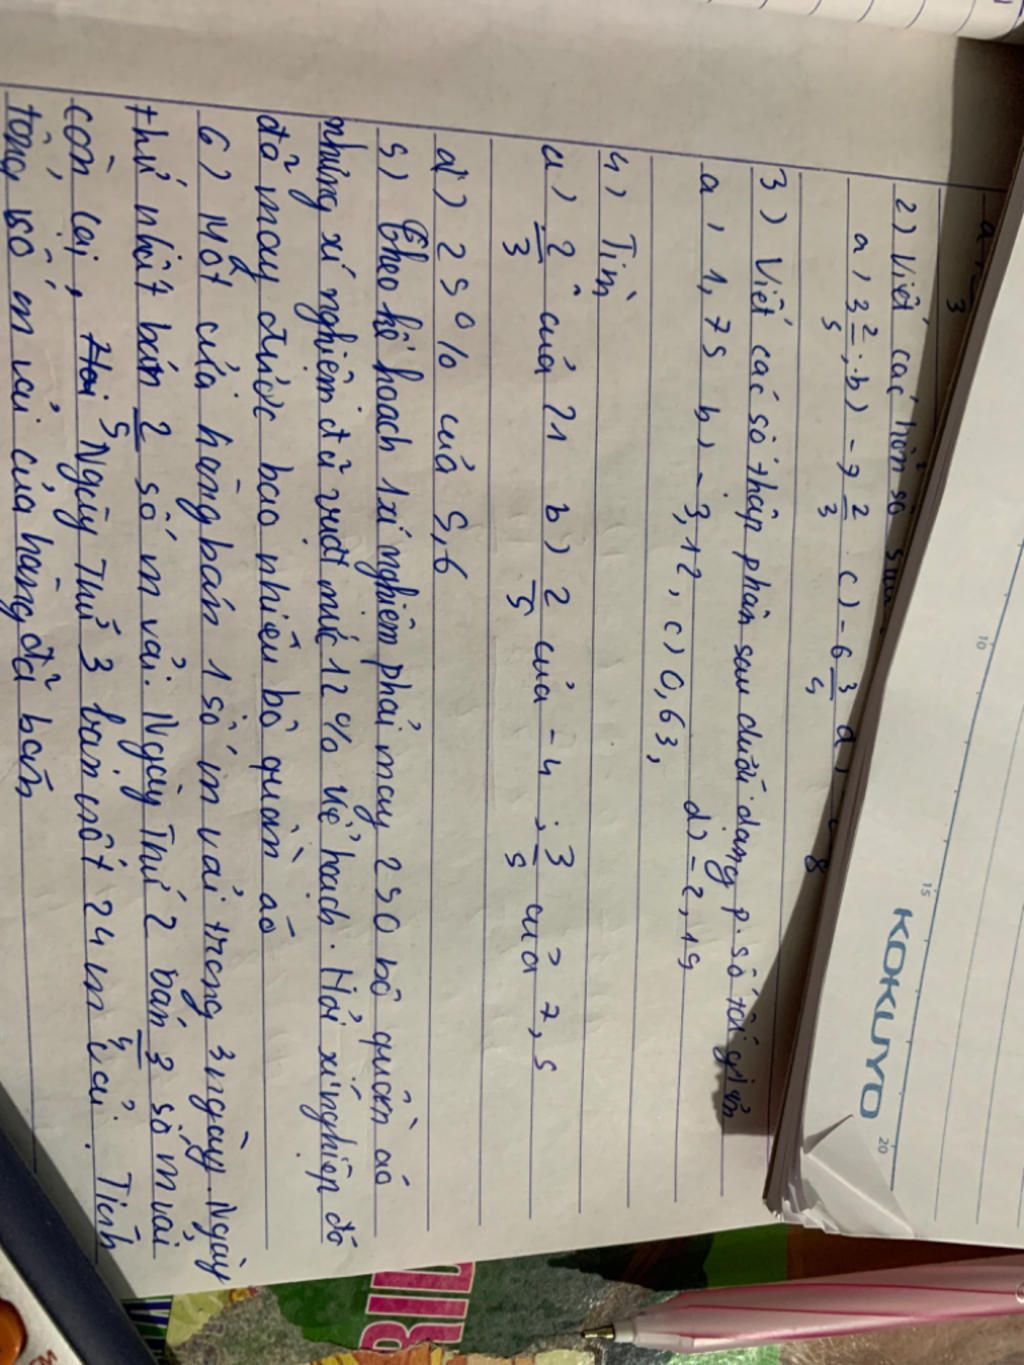 a, 3
2) Viết các hỗn số sau
a, 3 2/5; b) - 7 2/3 c) - 6 3/5 d, 8
3) Viết các số thập phân sau dưới dạng p.số tối giản
a, 1,75 b) - 3,12, c) 0,63, d) - 2,15
4) Tìm
a) 2/3 của 21 b) 2/5 của - 4; 3/5 của 7,5
d) 25% của 5,6
5) Theo kế hoạch 1 xí nghiệm phải may 250 bộ quần áo
nhưng xí nghiệm đã vượt mức 12% kế hoạch. Hỏi xí nghiệp đó
đã may được bao nhiêu bộ quần áo
6) Một cửa hàng bán 1 số m vải trong 3 ngày. Ngày
thứ nhất bán 2/5 số m vải. Ngày Thứ 2 bán 3/4 số m vải
còn lại, Ngày Thứ 3 bán nốt 24 m vải. Tính
tổng số m vải cửa hàng đã bán
KOKUYO
10
15
20
RID